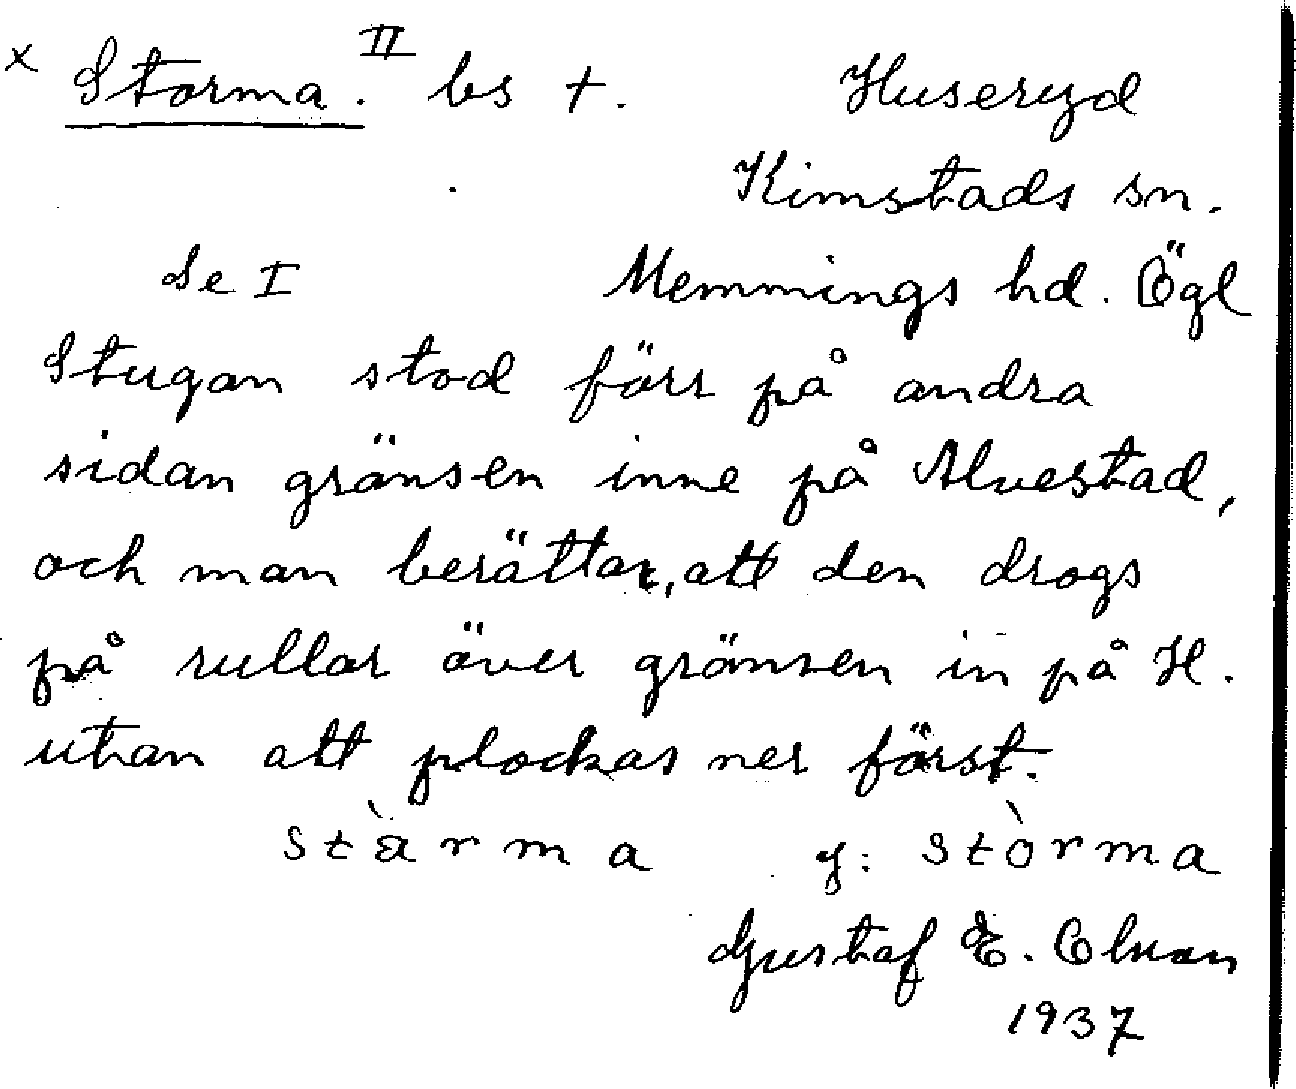 x Storma. II bs +. Huseryd
Kimstads sn.
Se I Memmings hd. Ögl
Stugan stod förr på andra
sidan gränsen inne på Alvestad,
och man berättar, att den drogs
på rullar över gränsen in på H.
utan att plockas ner först.
stàrma y: stòrma
Gustaf E.
1937